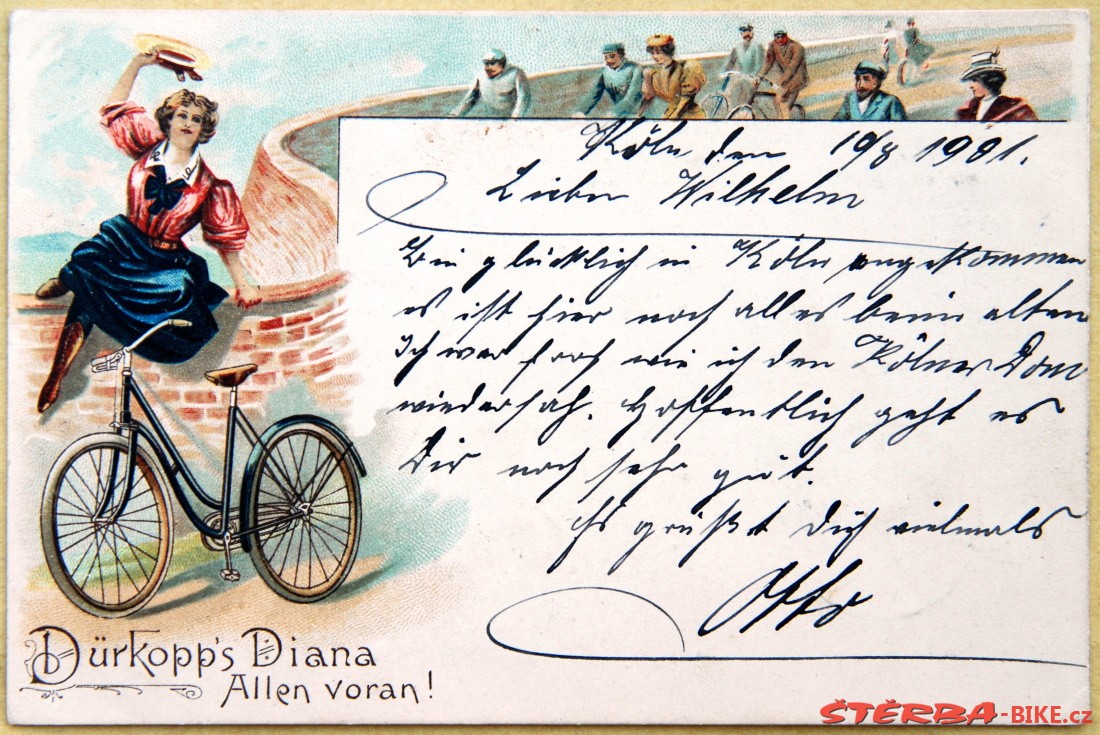 Köln den 19/8 1901.
Lieber Wilhelm
Bin glücklich in Köln angekommen
es ist hier noch alles beim alten
Ich war froh wie ich den Kölner Dom
wiedersah. Hoffentlich geht es
Dir noch sehr gut.
Es grüßt Dich vielmals
Otto
Dürkopp's Diana
Allen voran!
ŠTĚRBA-BIKE.cz